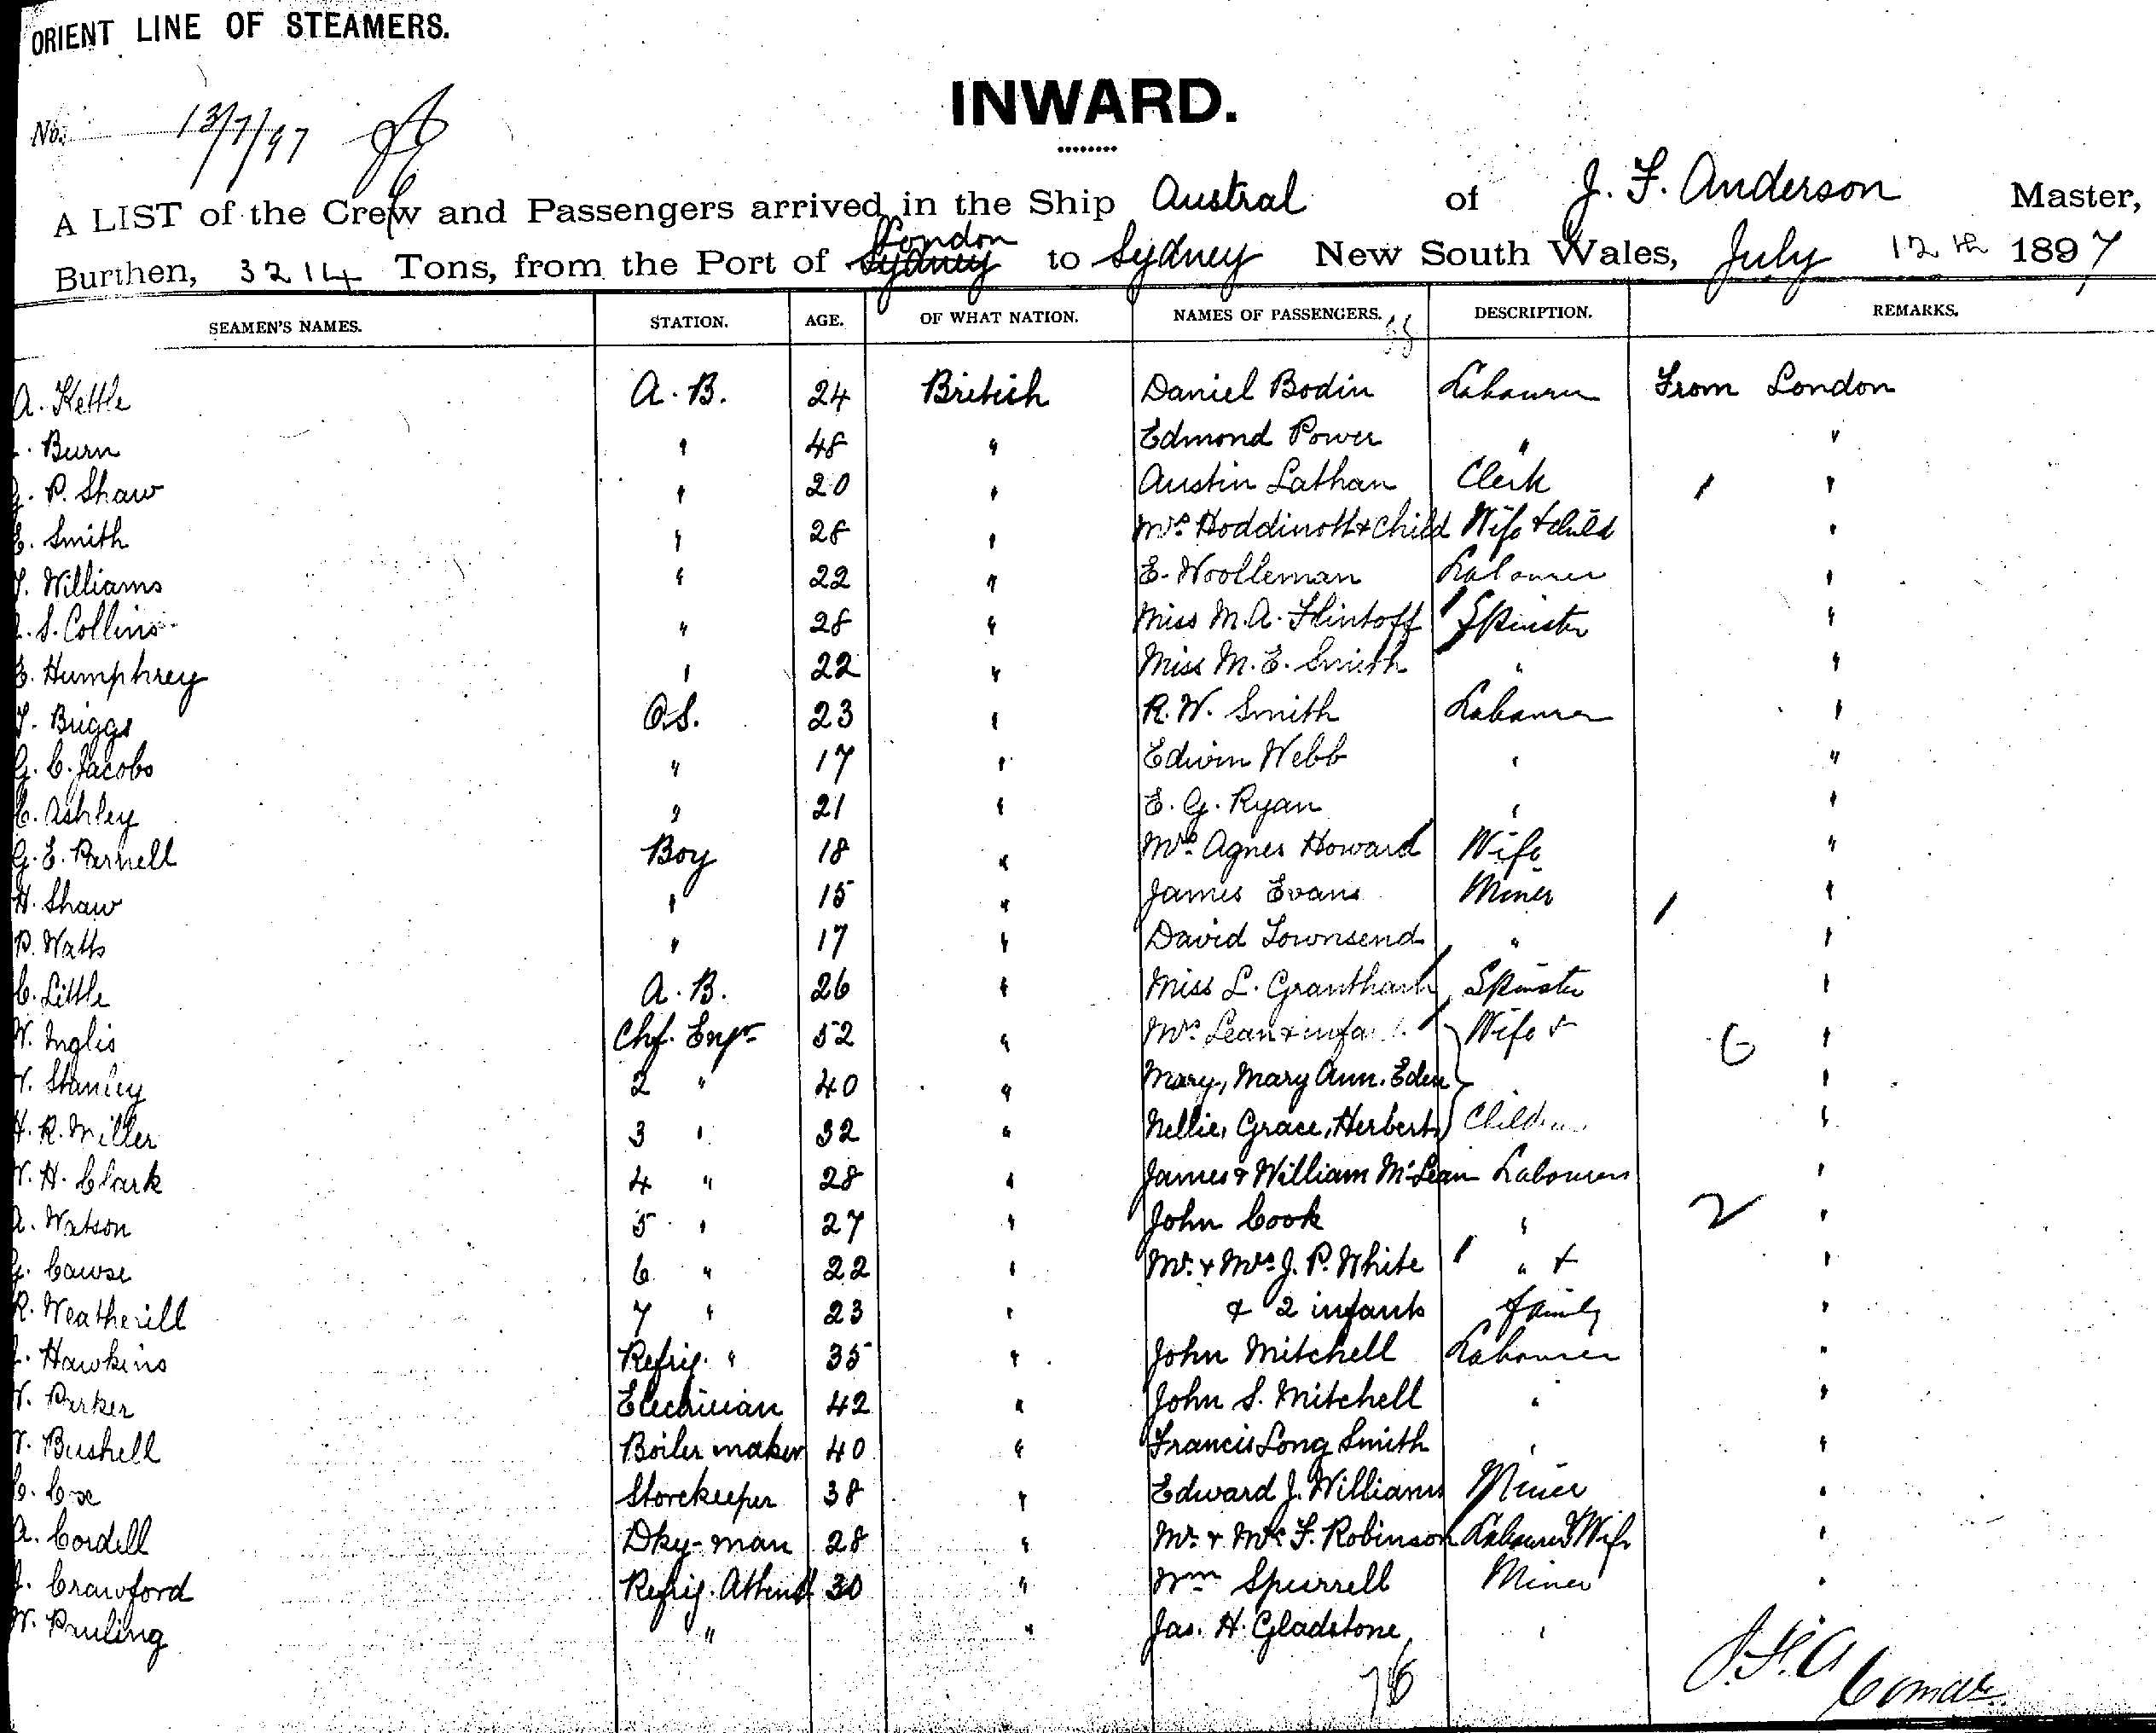 ORIENT LINE OF STEAMERS.
INWARD.
No. 13/7/97
A LIST of the Crew and Passengers arrived in the Ship Austral of J. F. Anderson Master,
London
Burthen, 3214 Tons, from the Port of Sydney to Sydney New South Wales, July 12th 1897
SEAMEN'S NAMES. STATION. AGE. OF WHAT NATION. NAMES OF PASSENGERS. DESCRIPTION. REMARKS.
A. Kettle A.B. 24 British Daniel Bodin Labourer From London
Burn " 48 " Edmond Power " "
G. P. Shaw " 20 " Austin Lathan Clerk "
E. Smith " 28 " Mrs Hoddinott & Child Wife & child "
T. Williams " 22 " E. Woolleman Labourer "
S. Collins " 28 " Miss M. A. Flintoff Spinster "
E. Humphrey " 22 " Miss M. E. Smith " "
T. Briggs O.S. 23 " R. W. Smith Labourer "
G. C. Jacobs " 17 " Edwin Webb " "
C. Ashley " 21 " E. G. Ryan " "
G. E. Parnell Boy 18 " Mrs Agnes Howard Wife "
H. Shaw " 15 " James Evans Miner "
P. Watts " 17 " David Townsend " "
C. Little A.B. 26 " Miss L. Grantham Spinster "
W. Inglis Chf. Engr 52 " Mrs Lean & Wife & 6 "
W. Stanley 2 " 40 " Mary, Mary Ann. Eden "
H. R. Miller 3 " 32 " Nellie, Grace, Herbert Children "
W. H. Clark 4 " 28 " James & William McLean Labourers "
A. Watson 5 " 27 " John Cook " 2 "
G. Cawse 6 " 22 " Mr. & Mrs. J. P. White " & "
R. Weatherill 7 " 23 " & 2 infants family "
J. Hawkins Refrig. " 35 " John Mitchell Labourer "
W. Parker Electrician 42 " John S. Mitchell " "
W. Bushell Boiler maker 40 " Francis Long Smith " "
C. Cox Storekeeper 38 " Edward J. Williams Miner "
A. Cordell Dky-man 28 " Mr. & Mrs F. Robinson Labourer & Wife "
J. Crawford Refrig. Attendt 30 " Wm Spurrell Miner "
W. Pruling " " Jas. H. Gladstone "
76
J.F.A.